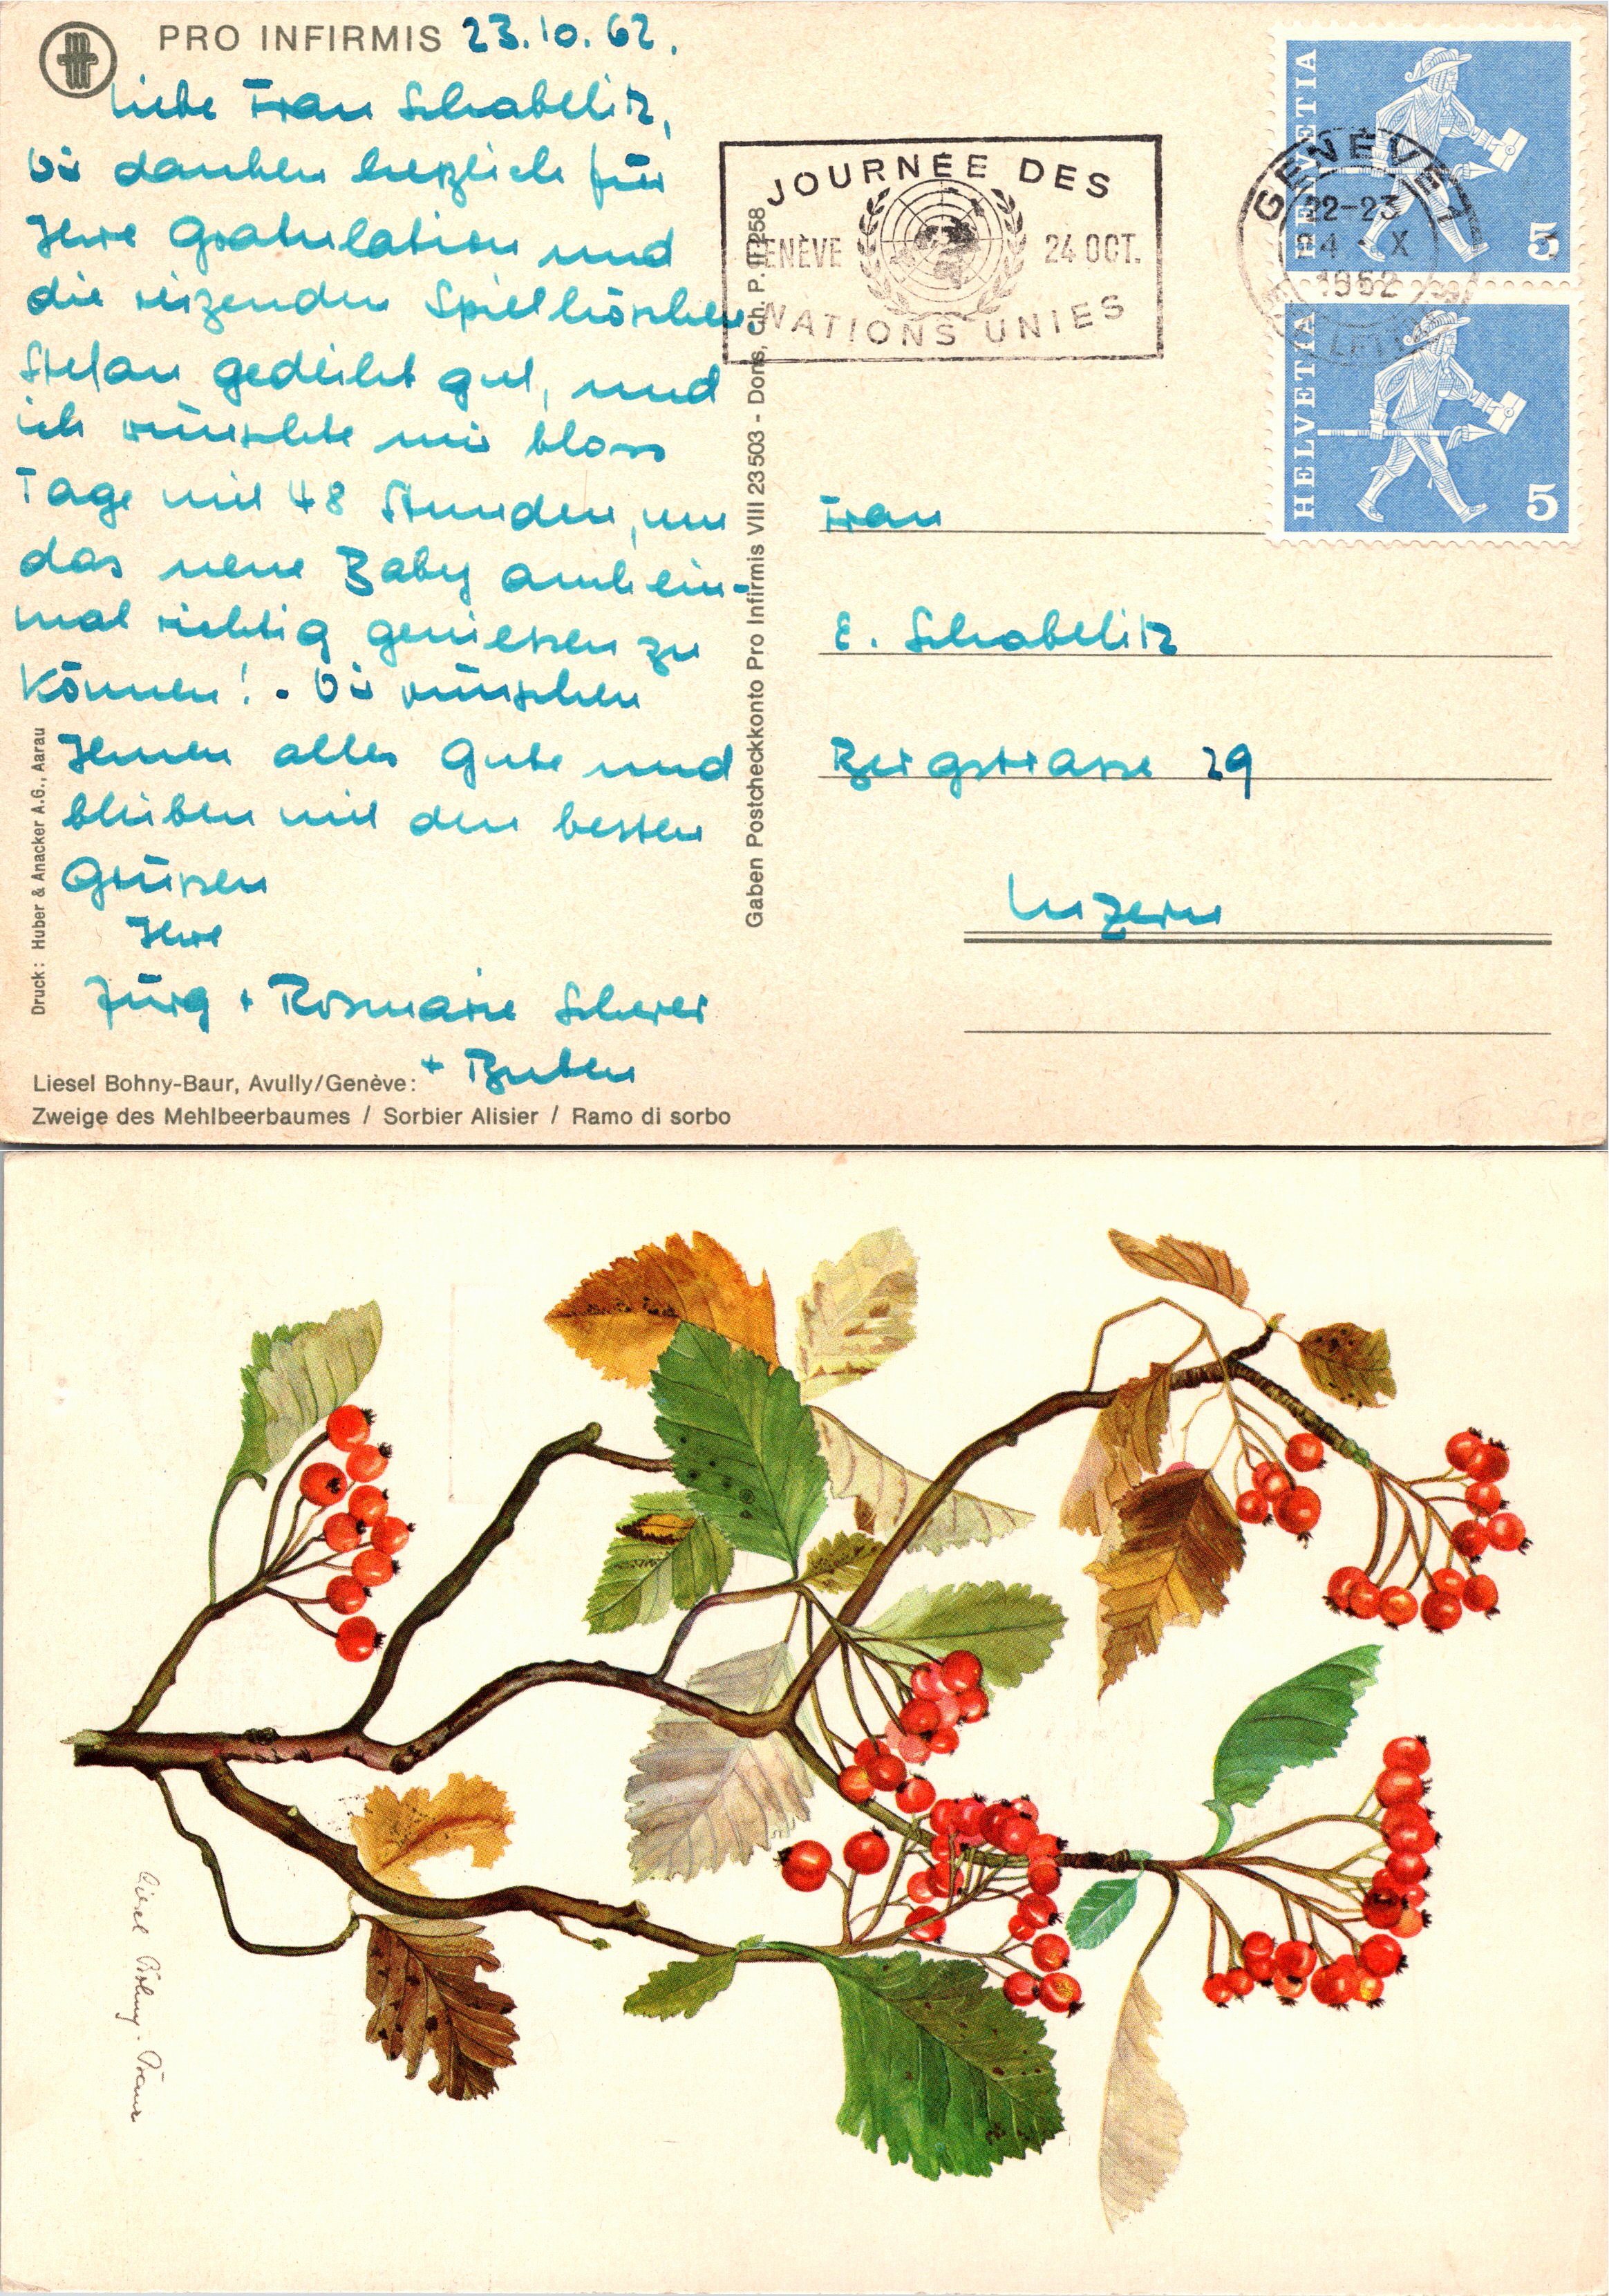 PRO INFIRMIS 23.10.62.
Liebe Frau Schabelitz,
Wir danken herzlich für
Ihre Gratulation und
die reizenden Spielhöschen
Stefan gedeiht gut, und
ich wünschte mir bloss
Tage mit 48 Stunden, um
das neue Baby auch ein-
mal richtig geniessen zu
können! - Wir wünschen
Ihnen alles Gute und
bleiben mit den besten
Grüssen
Ihre
Jürg + Rosmarie Scherer
+ Buben
Liesel Bohny-Baur, Avully/Genève:
Zweige des Mehlbeerbaumes / Sorbier Alisier / Ramo di sorbo
Druck: Huber & Anacker A.G., Aarau
Gaben Postcheckkonto Pro Infirmis VIII 23503 - Dons, Ch. P. II 258
JOURNÉE DES
GENÈVE 24 OCT.
NATIONS UNIES
GENÈVE 1
22-23
24 - X
1962
HELVETIA
5
HELVETIA
5
Frau
E. Schabelitz
Bergstrasse 29
Luzern
Liesel Bohny-Baur